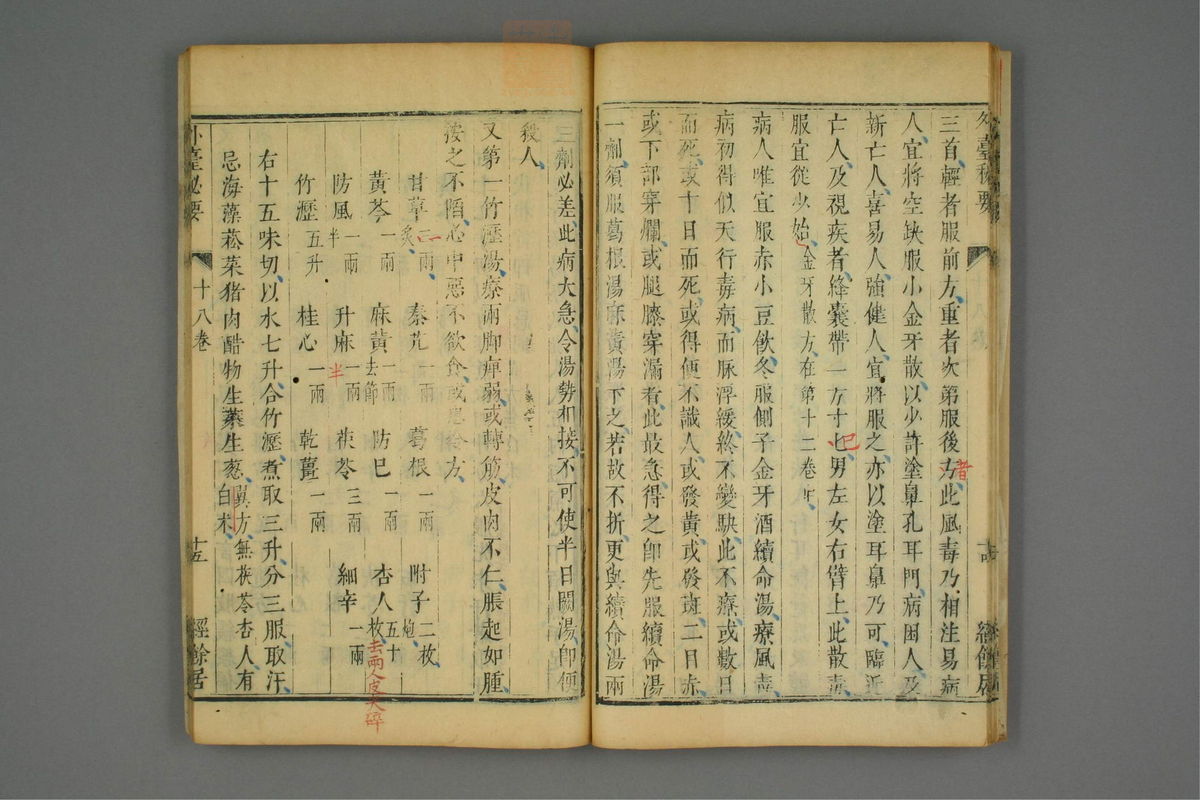 外臺秘要
三首輕者服前方重者次第服後方此風毒乃相注易病
者
人宜將空缺服小金牙散以少許塗鼻孔耳門病困人及
新亡人喜易人強健人宜將服之亦以塗耳鼻乃可臨近
亡人及視疾者絳囊帶一方寸匕男左女右臂上此散毒
服宜從少始金牙散方在第十二卷
病人唯宜服赤小豆飲冬服側子金牙酒續命湯療風毒
病初得似天行毒病而脉浮緩終不變駃此不療或數日
而死或十日而死或得便不識人或發黃或發斑二目赤
或下部穿爛或腿膝穿漏者此最急得之即先服續命湯
一劑須服葛根湯麻黃湯下之若故不折更與續命湯兩
三劑必差此病大急令湯勢相接不可使半日闕湯即便
殺人
又第一竹瀝湯療兩脚痺弱或轉筋皮肉不仁脹起如腫
按之不陷心中惡不欲食或患冷方
甘草二兩炙 秦艽一兩 葛根一兩 附子二枚炮
黃芩一兩 麻黃一兩去節 防已一兩 杏人五十枚去兩人皮尖碎
防風一兩半 升麻一兩半 茯苓三兩 細辛一兩
竹瀝五升 桂心一兩 乾薑一兩
右十五味切以水七升合竹瀝煮取三升分三服取汗
忌海藻菘菜猪肉酷物生菜生葱翼方無茯苓杏人有白朮
外臺必要 十八卷 十五 經餘居